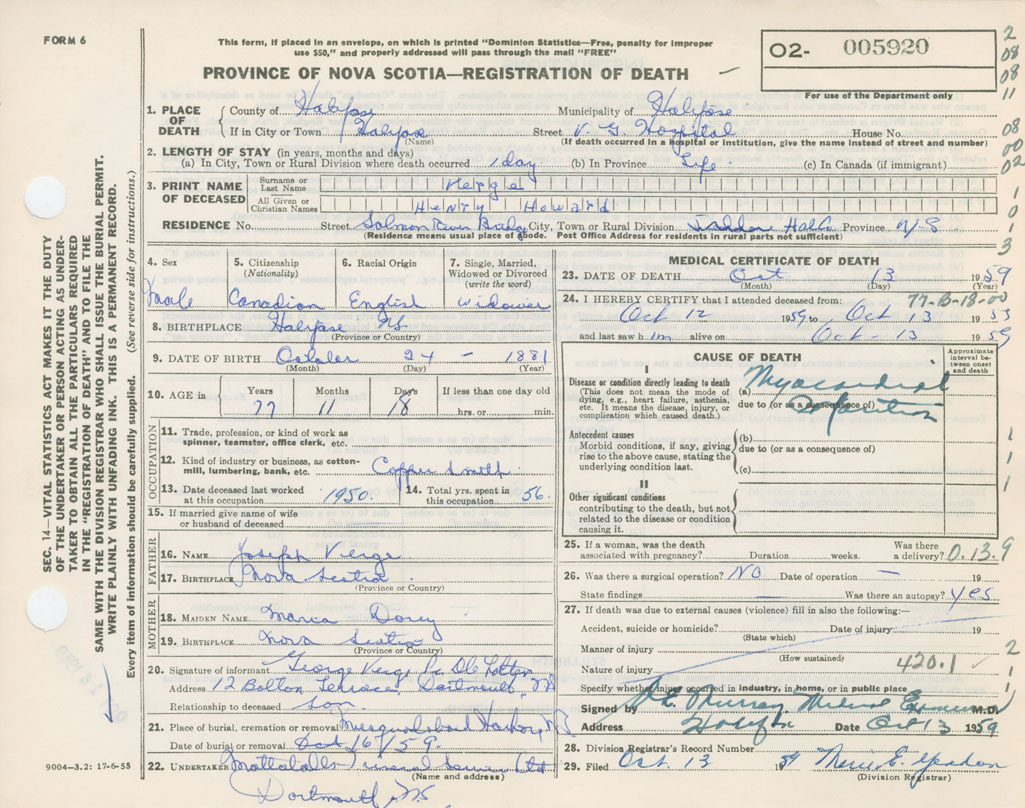 FORM 6
This form, if placed in an envelope, on which is printed "Dominion Statistics—Free, penalty for improper
use $50," and properly addressed will pass through the mail "FREE"
PROVINCE OF NOVA SCOTIA—REGISTRATION OF DEATH
02- 005920
For use of the Department only
2
08
08
11
08
00
02
1
0
1
3
1. PLACE OF DEATH
County of Halifax Municipality of Halifax
If in City or Town Halifax Street V. G. Hospital House No.
(Name) (If death occurred in a hospital or institution, give the name instead of street and number)
2. LENGTH OF STAY (in years, months and days)
(a) In City, Town or Rural Division where death occurred 1 day (b) In Province Life (c) In Canada (if immigrant)
3. PRINT NAME OF DECEASED
Surname or Last Name Verge
All Given or Christian Names Henry Howard
RESIDENCE No. Street Salmon River Bridge City, Town or Rural Division Halls Province N-S
(Residence means usual place of abode. Post Office Address for residents in rural parts not sufficient)
4. Sex
Male
5. Citizenship
(Nationality)
Canadian
6. Racial Origin
English
7. Single, Married,
Widowed or Divorced
(write the word)
Widower
8. BIRTHPLACE Halifax NS
(Province or Country)
9. DATE OF BIRTH October 24 - 1881
(Month) (Day) (Year)
10. AGE in
Years Months Days If less than one day old
77 11 18 hrs. or min.
OCCUPATION
11. Trade, profession, or kind of work as
spinner, teamster, office clerk, etc.
12. Kind of industry or business, as cotton-
mill, lumbering, bank, etc. Copper Smith
13. Date deceased last worked
at this occupation 1950.
14. Total yrs. spent in
this occupation 56.
15. If married give name of wife
or husband of deceased
FATHER
16. NAME Joseph Verge
17. BIRTHPLACE Nova Scotia
(Province or Country)
MOTHER
18. MAIDEN NAME Maria Dorey
19. BIRTHPLACE Nova Scotia
(Province or Country)
20. Signature of informant George Verge
Address 12 Bolton Terrace, Dartmouth, NS
Relationship to deceased son
21. Place of burial, cremation or removal Musquodoboit Harbour, NS
Date of burial or removal Oct 16/59.
22. UNDERTAKER Mattatalls Funeral Service Ltd
(Name and address)
Dartmouth, NS
9004—3.2: 17-6-55
MEDICAL CERTIFICATE OF DEATH
23. DATE OF DEATH Oct 13 1959
(Month) (Day) (Year)
77-B-18-00
24. I HEREBY CERTIFY that I attended deceased from:
Oct 12 1959 to Oct 13 1959
and last saw him alive on Oct. 13 1959
CAUSE OF DEATH
Approximate
interval be-
tween onset
and death
I
Disease or condition directly leading to death
(This does not mean the mode of
dying, e.g., heart failure, asthenia,
etc. It means the disease, injury, or
complication which caused death.)
(a) Myocardial
due to (or as a consequence of)
Infarction
Antecedent causes
Morbid conditions, if any, giving
rise to the above cause, stating the
underlying condition last.
(b)
due to (or as a consequence of)
(c)
1
1
1
II
Other significant conditions
contributing to the death, but not
related to the disease or condition
causing it.
25. If a woman, was the death
associated with pregnancy? Duration weeks. Was there
a delivery? 0.13.9
26. Was there a surgical operation? NO Date of operation — 19
State findings — Was there an autopsy? yes
27. If death was due to external causes (violence) fill in also the following:—
Accident, suicide or homicide? Date of injury 19
(State which)
Manner of injury
(How sustained)
Nature of injury 420.1 ✓
Specify whether injury occurred in industry, in home, or in public place
2
1
1
Signed by Murray Medical Examiner M.D.
Address Halifax Date Oct 13 1959
28. Division Registrar's Record Number
29. Filed Oct. 13 1959
(Division Registrar)
SEC. 14—VITAL STATISTICS ACT MAKES IT THE DUTY
OF THE UNDERTAKER OR PERSON ACTING AS UNDER-
TAKER TO OBTAIN ALL THE PARTICULARS REQUIRED
IN THE "REGISTRATION OF DEATH" AND TO FILE THE
SAME WITH THE DIVISION REGISTRAR WHO SHALL ISSUE THE BURIAL PERMIT.
WRITE PLAINLY WITH UNFADING INK. THIS IS A PERMANENT RECORD.
Every item of information should be carefully supplied. (See reverse side for instructions.)